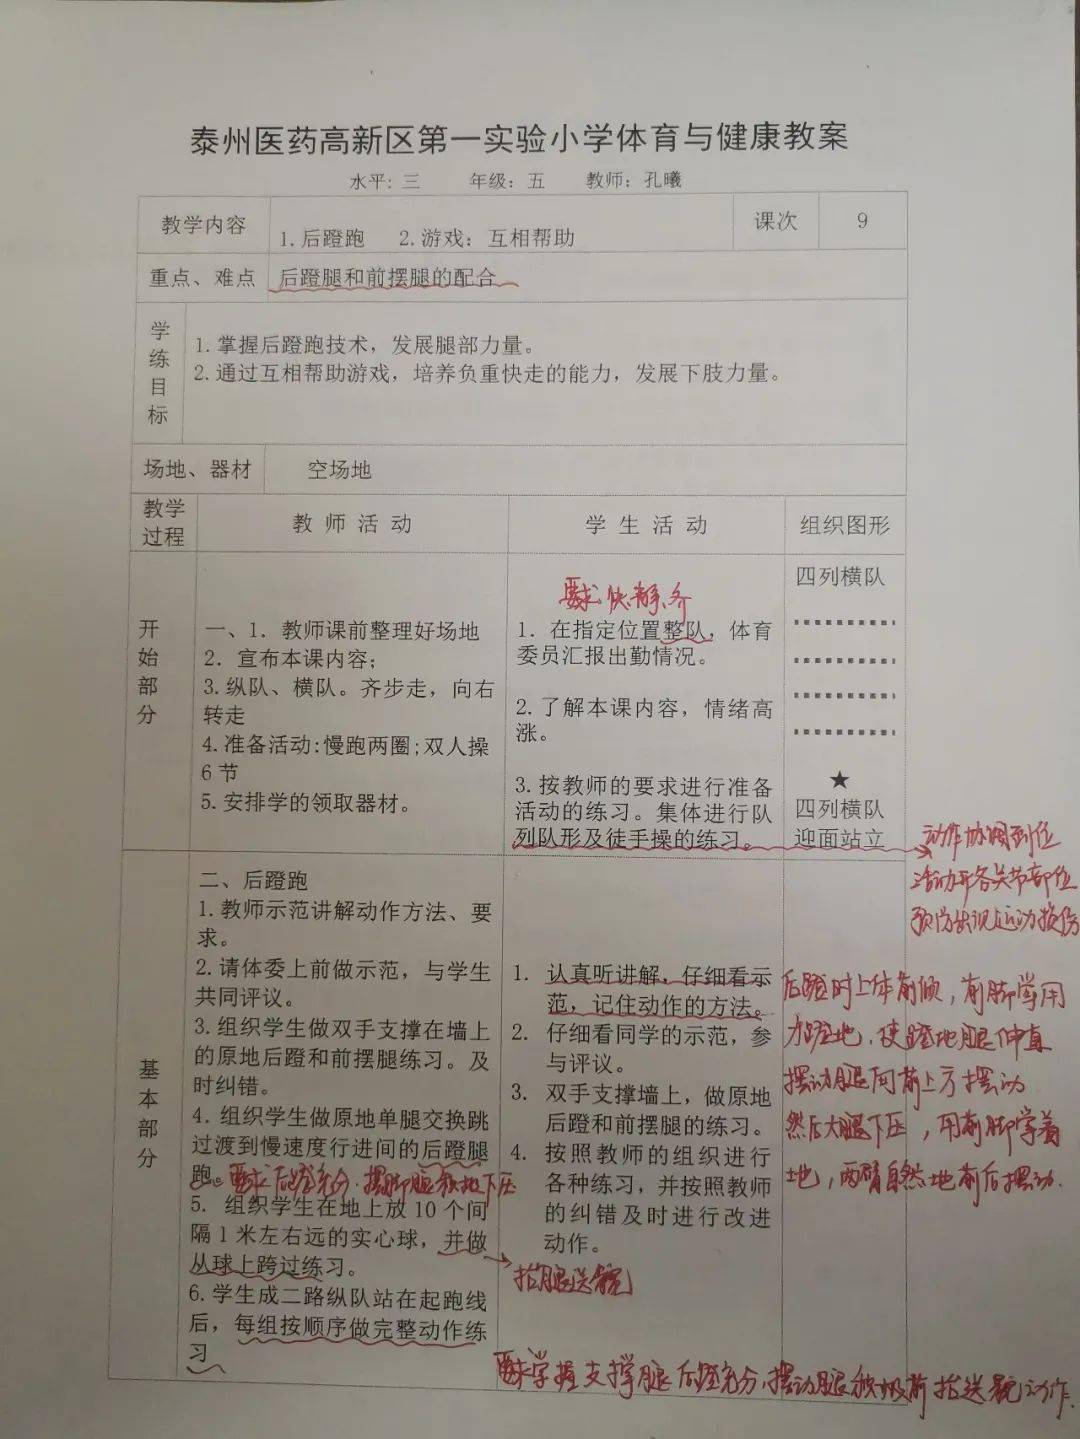 泰州医药高新区第一实验小学体育与健康教案
水平: 三 年级: 五 教师: 孔曦
教学内容
1.后蹬跑 2.游戏: 互相帮助
课次
9
重点、难点
后蹬腿和前摆腿的配合
学练目标
1.掌握后蹬跑技术，发展腿部力量。
2.通过互相帮助游戏，培养负重快走的能力，发展下肢力量。
场地、器材
空场地
教学过程
教师活动
学生活动
组织图形
开始部分
一、1. 教师课前整理好场地
2. 宣布本课内容;
3.纵队、横队。齐步走，向右
转走
4.准备活动:慢跑两圈;双人操
6节
5.安排学的领取器材。
要求快、静、齐
1. 在指定位置整队，体育
委员汇报出勤情况。
2.了解本课内容，情绪高
涨。
3.按教师的要求进行准备
活动的练习。集体进行队
列队形及徒手操的练习。
四列横队
★
四列横队
迎面站立
动作协调到位
活动开各关节部位
预防出现运动损伤
基本部分
二、后蹬跑
1.教师示范讲解动作方法、要
求。
2.请体委上前做示范，与学生
共同评议。
3.组织学生做双手支撑在墙上
的原地后蹬和前摆腿练习。及
时纠错。
4.组织学生做原地单腿交换跳
过渡到慢速度行进间的后蹬腿
跑。
要求后蹬充分，摆动腿积极下压
5. 组织学生在地上放10个间
隔1米左右远的实心球，并做
从球上跨过练习。
6.学生成二路纵队站在起跑线
后，每组按顺序做完整动作练
习
1. 认真听讲解，仔细看示
范，记住动作的方法。
2. 仔细看同学的示范，参
与评议。
3. 双手支撑墙上，做原地
后蹬和前摆腿的练习。
4. 按照教师的组织进行
各种练习，并按照教师
的纠错及时进行改进
动作。
抬腿送髋
后蹬时上体前倾，前脚掌用
力蹬地，使蹬地腿伸直
摆动腿向前上方摆动
然后大腿下压，用前脚掌着
地，两臂自然地前后摆动.
要求掌握支撑腿后蹬充分，摆动腿积极前抬送髋动作.